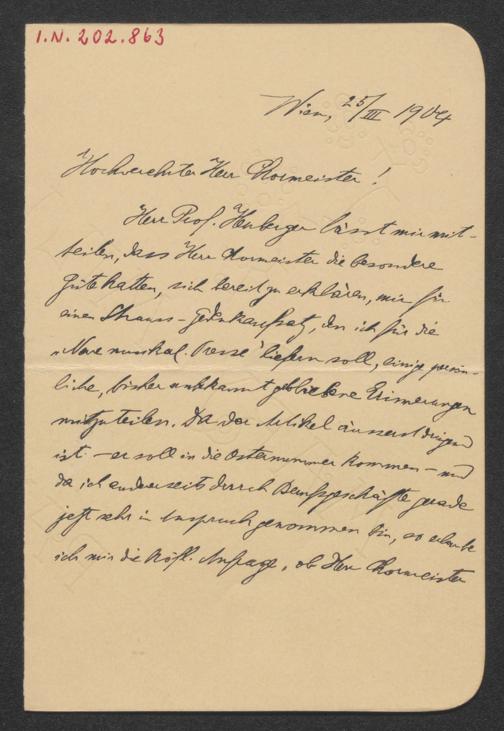 I.N. 202.863
Wien, 25/III 1904
Hochverehrter Herr Chormeister!
Herr Prof. Heuberger lässt mir mit-
teilen, dass Herr Chormeister die besondere
Güte hatten, sich bereit zu erklären, mir für
einen Strauss-Gedenkaufsatz, den ich für die
"Neue musikal. Presse" liefern soll, einige persön-
liche, bisher unbekannt gebliebene Erinnerungen
mitzuteilen. Da der Artikel äusserst dringend
ist - er soll in die Osternummer kommen - und
da ich anderseits durch Berufsgeschäfte gerade
jetzt sehr in Anspruch genommen bin, so erlaube
ich mir die höfl. Anfrage, ob Herr Chormeister